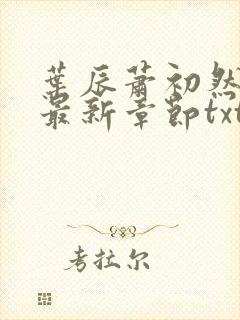 葉辰蕭初然
最新章節txt
考拉尔